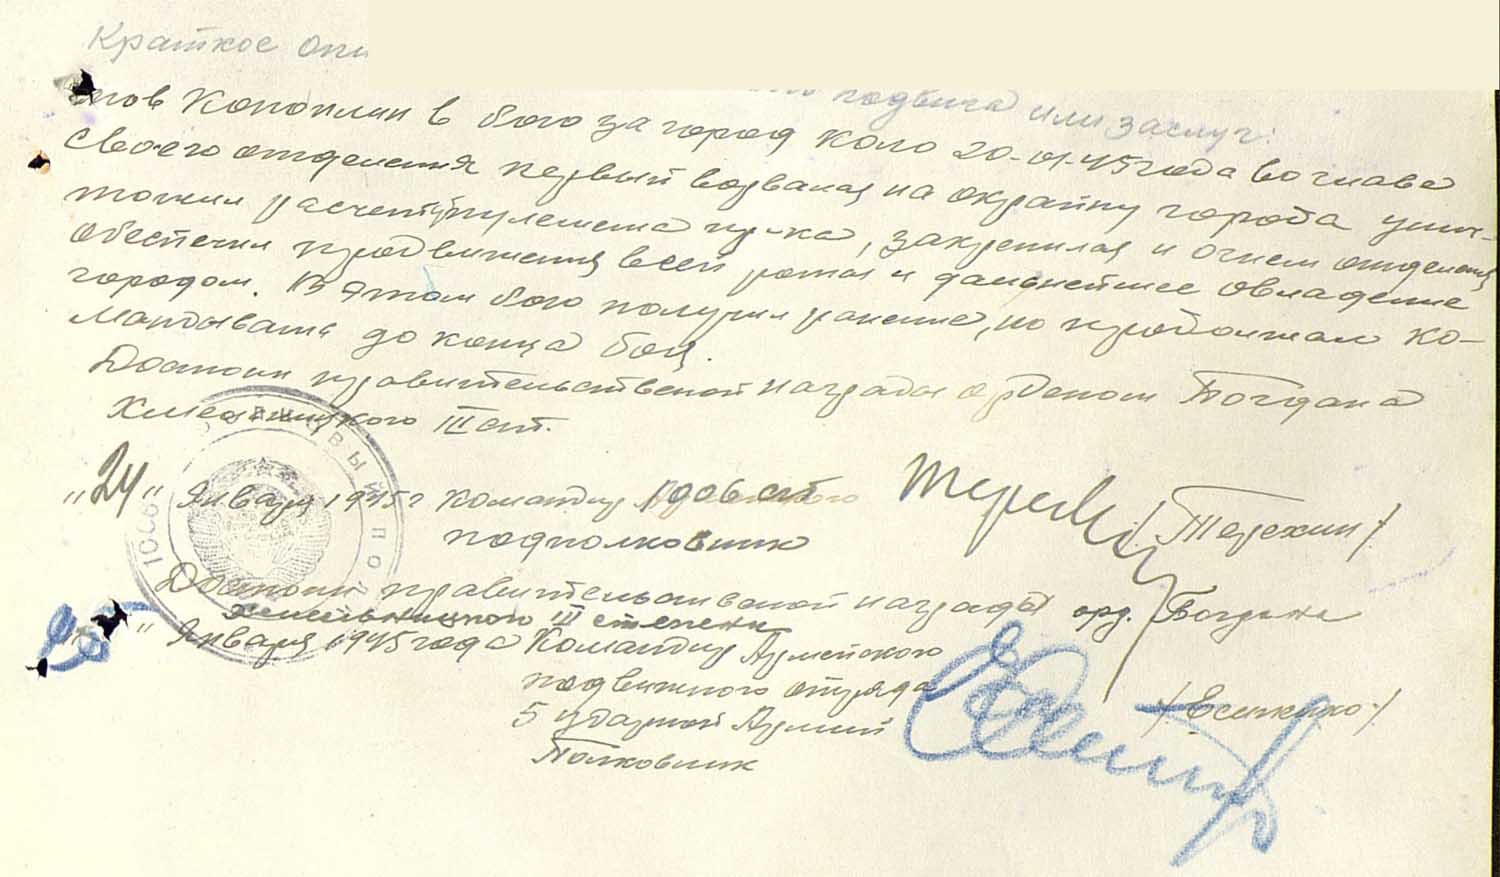 Краткое опи
подвига или заслуг:
Коноплин в бою за город Коло 20-01-45 года во главе
своего отделения первый ворвался на окраину города унич-
тожил расчет пулемета пр-ка, закрепился и огнем отделения
обеспечил продвижения всей роты и дальнейшее овладение
городом. В этом бою получил ранение, но продолжал ко-
мандывать до конца боя.
Достоин правительственой награды орденом Богдана
Хмельницкого III ст.
"24" Января 1945 г Командир 1006 сп
подполковник /Терехин/
Достоин правительственой награды орд. Богдана
Хмельницкого III степени
" " Января 1945 года Командир Армейского
подвижного отряда
5 ударной Армии
Полковник /Есипенко/